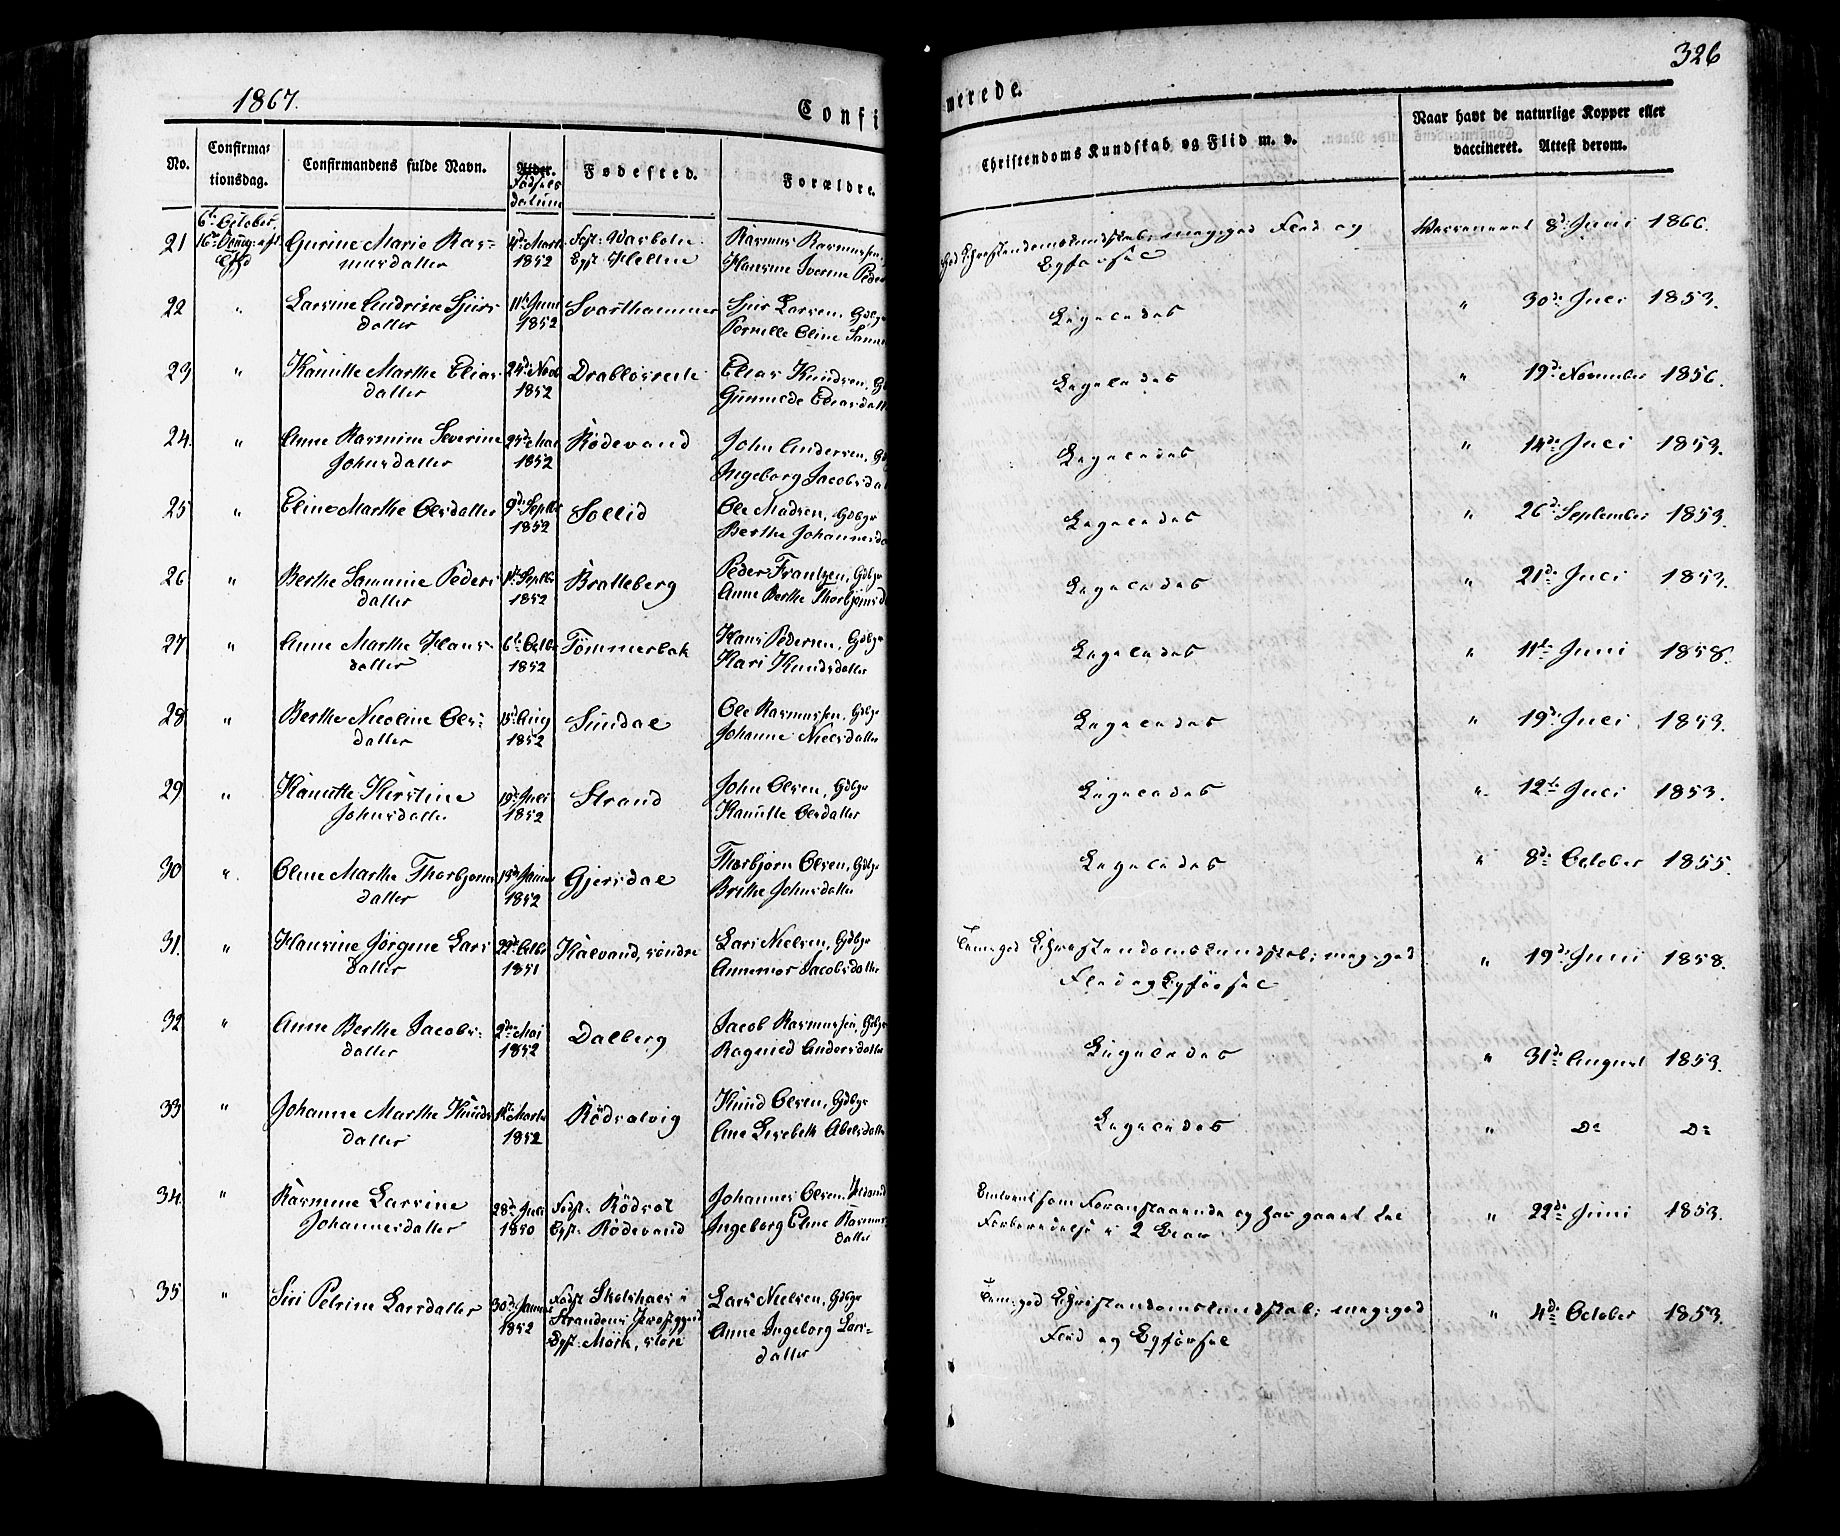 326
1867.
Confi
merede.
No.
Confirma-
tionsdag.
Confirmandens fulde Navn.
Alder.
Fødsels
datum
Fødested.
Forældre.
Christendoms Kundskab og Flid m. v.
Naar havt de naturlige Kopper eller
vaccineret. Attest derom.
6te October,
21 Gurine Marie Ras-
musdatter
4de Marts
1852
Fost:
Opf:
Rasmus Rasmussen,
Hansine Iverine Peder
god Christendomskundskab, meg. god Flid og
Opførsel
Vaccineret 8de Juni 1866.
22 " Larsine Andrine Sjurs
datter
11te Juni
1852
Svarthammer
Sjur Larsen, Gdbgr
Pernille Oline
Ligeledes
" 30de Juli 1853.
23 " Knutte Marthe Elias
datter
24de Novb
1852
Elias Knudsen, G
Gunnilde Eliasdatt
Ligeledes
" 19de November 1856.
24. " Anne Rasmine Severine
Johnsdatter
1852
Rødevand
John Andersen, Gd
Ingeborg Jacobsda
Ligeledes
" 14de Juli 1853.
25 " Eline Marthe Olsdatter
9de Septbr
1852
Sollid
Ole Madsen, Gdbgr
Berthe Johannesda
Ligeledes
" 26de September 1853.
26 " Berthe Sammine Peders
datter
1ste Septbr
1852
Bratteberg
Peder Frantzen, Gdbgr
Anne Berthe Thorbjørnsd
Ligeledes
" 21de Juli 1853.
27 " Anne Marthe Hans
datter
6te Octbr
1852
Tømmerbak
Hans Pedersen, Gdbgr
Kari Knudsdatter
Ligeledes
" 11te Juni 1858.
28 " Berthe Nicoline Ols-
datter
1852
Sundal
Ole Rasmussen, Gdbgr
Johanne Nielsdatter
Ligeledes
" 19de Juli 1853.
29 " Knutte Kirstine
Johnsdatter
19de Juli
1852
Strand
John Olsen, Gdbgr
Knutte Olsdatter
Ligeledes
" 12te Juli 1853.
30 " Oline Marthe Thorbjørns
datter
1852
Gjersdal
Thorbjørn Olsen, Gdbgr
Brithe Johnsdatter
Ligeledes
" 8de October 1855.
31. " Hansine Jørgine Lars
datter
22de Octbr
1851
Kalvand, søndre
Lars Nielsen, Gdbgr
Annemor Jacobsdatter
Tem. god Christendomskundskab; meg. god
Flid og Opførsel
" 19de Juni 1858.
32 " Anne Berthe Jacobs-
datter
2den Mai
1852
Dalberg
Jacob Rasmussen, Gdbgr
Ragnild Andersdatter
Ligeledes
" 31de August 1853.
33 " Johanne Marthe Knuds
datter
1852
Rødsalvig
Knud Olsen, Gdbgr
Ane Lisebeth Abelsdatter
Ligeledes
" Do Do
34. " Rasmine Larsine
Johannesdatter
28de Juli
1850
Fødst: Rødsøt
Opf: Rødevand
Johannes Olsen,
Ingeborg Eline Rasmus
datter
Omtrent som Foranstaaende og har gaaet til
Forberedelse i 2 Aar.
" 22de Juni 1853.
35 " Siri Petrine Larsdatter
30de Januar
1852
Fødst i
Strandens Præstegjeld
Opf: Mørk, store
Lars Nielsen, Gdbgr
Anne Ingeborg Lars-
datter
Tem. god Christendomskundskab; meg. god
Flid og Opførsel
" 4de October 1853.